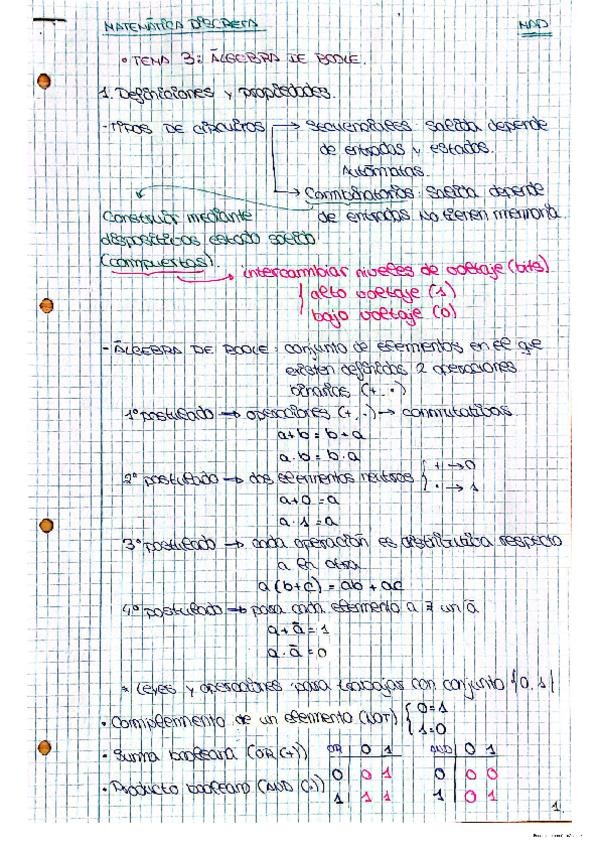 MATEMÁTICA DISCRETA
MAD
• TEMA 3: ÁLGEBRA DE BOOLE.
1. Definiciones y propiedades.
- TIPOS DE CIRCUITOS → Secuenciales: Salida depende
de entradas y estados.
Autómatas.
→ Combinatorios: Salida depende
de entradas. No tienen memoria.
Construir mediante
dispositivos estado sólido
(compuertas).
→ intercambiar niveles de voltaje (bits)
{ alto voltaje (1)
bajo voltaje (0)
- ÁLGEBRA DE BOOLE: conjunto de elementos en el que
existen definidas 2 operaciones
binarias (+, ·)
1º postulado → operaciones (+, ·) → conmutativas.
a+b = b+a
a·b = b·a
2º postulado → dos elementos neutros { + → 0
· → 1
a+0 = a
a·1 = a
3º postulado → cada operación es distributiva respecto
a la otra
a(b+c) = ab + ac
4º postulado → para cada elemento a ∃ un ā
a+ā = 1
a·ā = 0
* Leyes y operaciones para trabajar con conjunto {0,1}
• Complemento de un elemento (NOT) { 0=1
1=0
• Suma booleana (OR (+)) OR | 0 1 AND | 0 1
0 | 0 1 0 | 0 0
• Producto booleano (AND (·)) 1 | 1 1 1 | 0 1
1